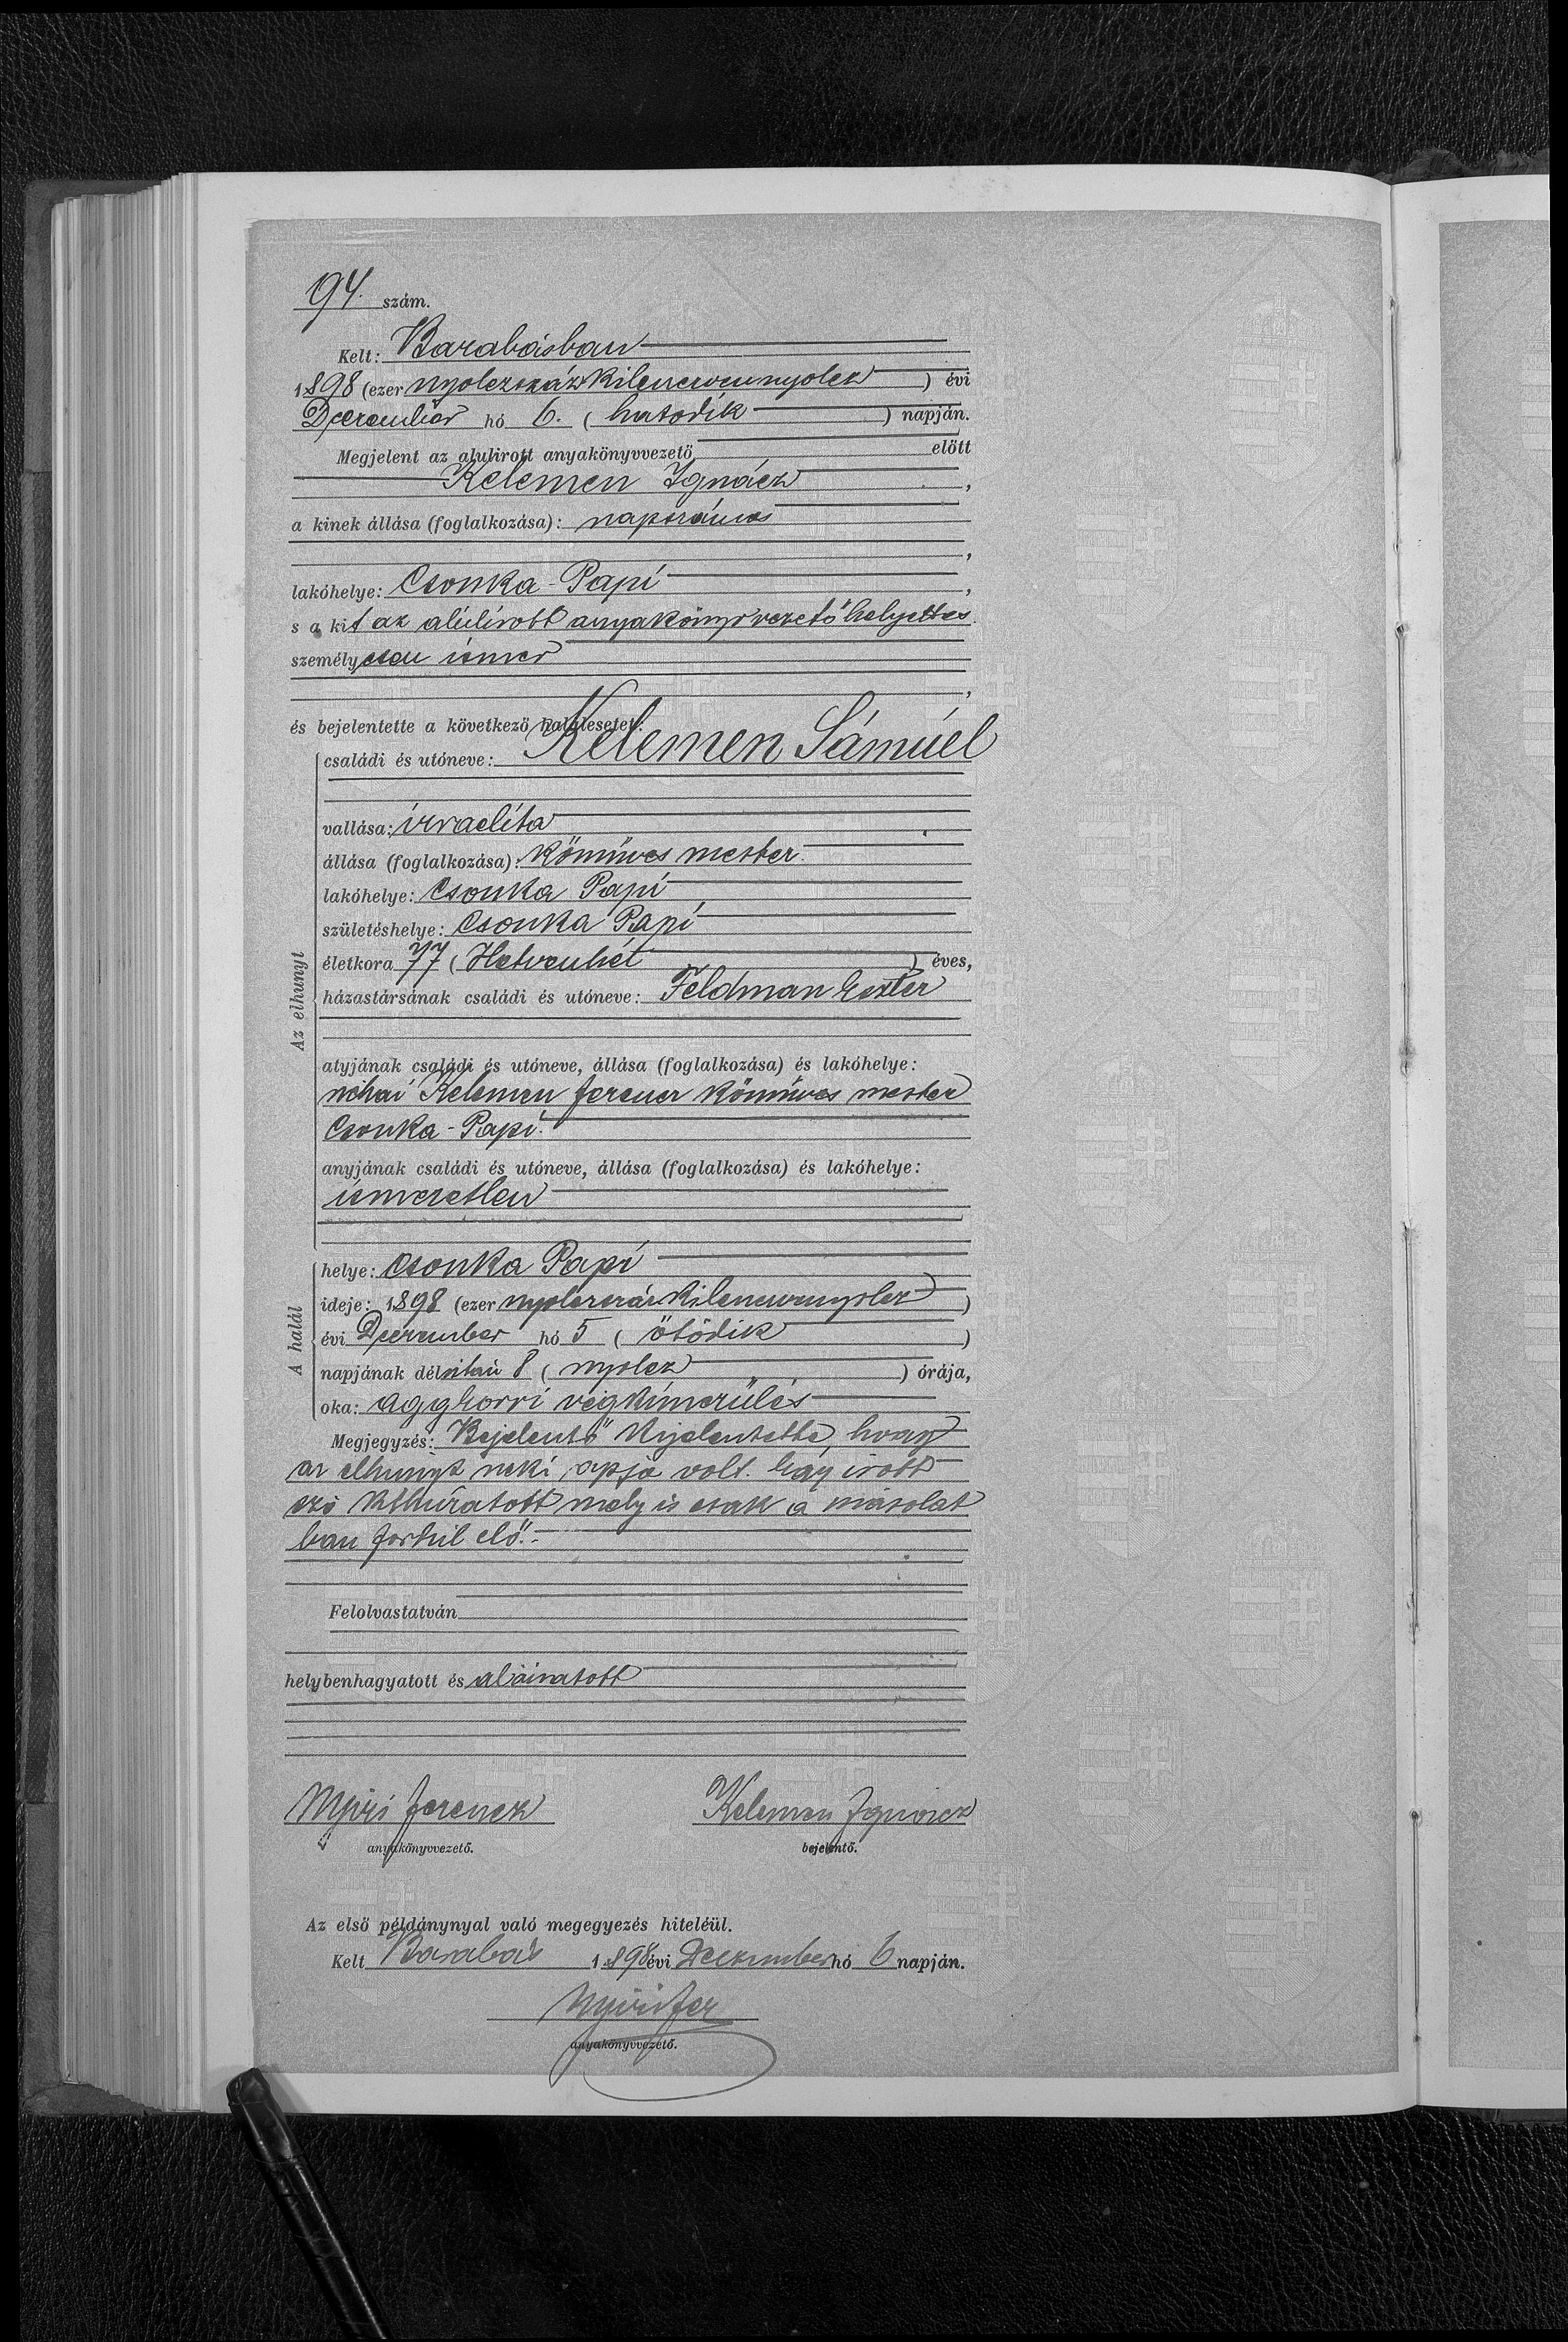 94. szám.
Kelt: Barabásban
1898 (ezer nyolczszázkilenczvennyolcz) évi
Deczember hó 6. (hatodik) napján.
Megjelent az alulirott anyakönyvvezető előtt
Kelemen Ignácz,
a kinek állása (foglalkozása): napszámos
,
lakóhelye: Csonka-Papi,
s a kit az alúlírott anyakönyvvezető helyettes
személyesen ismer
,
és bejelentette a következő halálesetet:
Az elhunyt
családi és utóneve: Kelemen Sámúel
vallása: izraelita
állása (foglalkozása): Kőmíves mester
lakóhelye: Csonka Papi
születéshelye: Csonka Papi
életkora 77 (Hetvenhét) éves,
házastársának családi és utóneve: Feldman Eszter
atyjának családi és utóneve, állása (foglalkozása) és lakóhelye:
néhai Kelemen Ferencz Kőmíves mester
Csonka-Papi.
anyjának családi és utóneve, állása (foglalkozása) és lakóhelye:
ismeretlen
A halál
helye: Csonka Papi
ideje: 1898 (ezer nyolczszázkilenczvennyolcz)
évi Deczember hó 5 (ötödik)
napjának délutáni 8 (nyolcz) órája,
oka: aggkorri végkimerülés
Megjegyzés: Bejelentő kijelentette, hogy
az elhunyt neki apja volt. Egy írott
szó kihúzatott mely is csak a másolat
ban fordúl elő.
Felolvastatván
helybenhagyatott és aláiratott
Nyiri Ferencz Kelemen Ignácz
anyakönyvvezető. bejelentő.
Az első példánynyal való megegyezés hiteléül.
Kelt Barabás 1898 évi Deczember hó 6 napján.
Nyiri Fer
anyakönyvvezető.